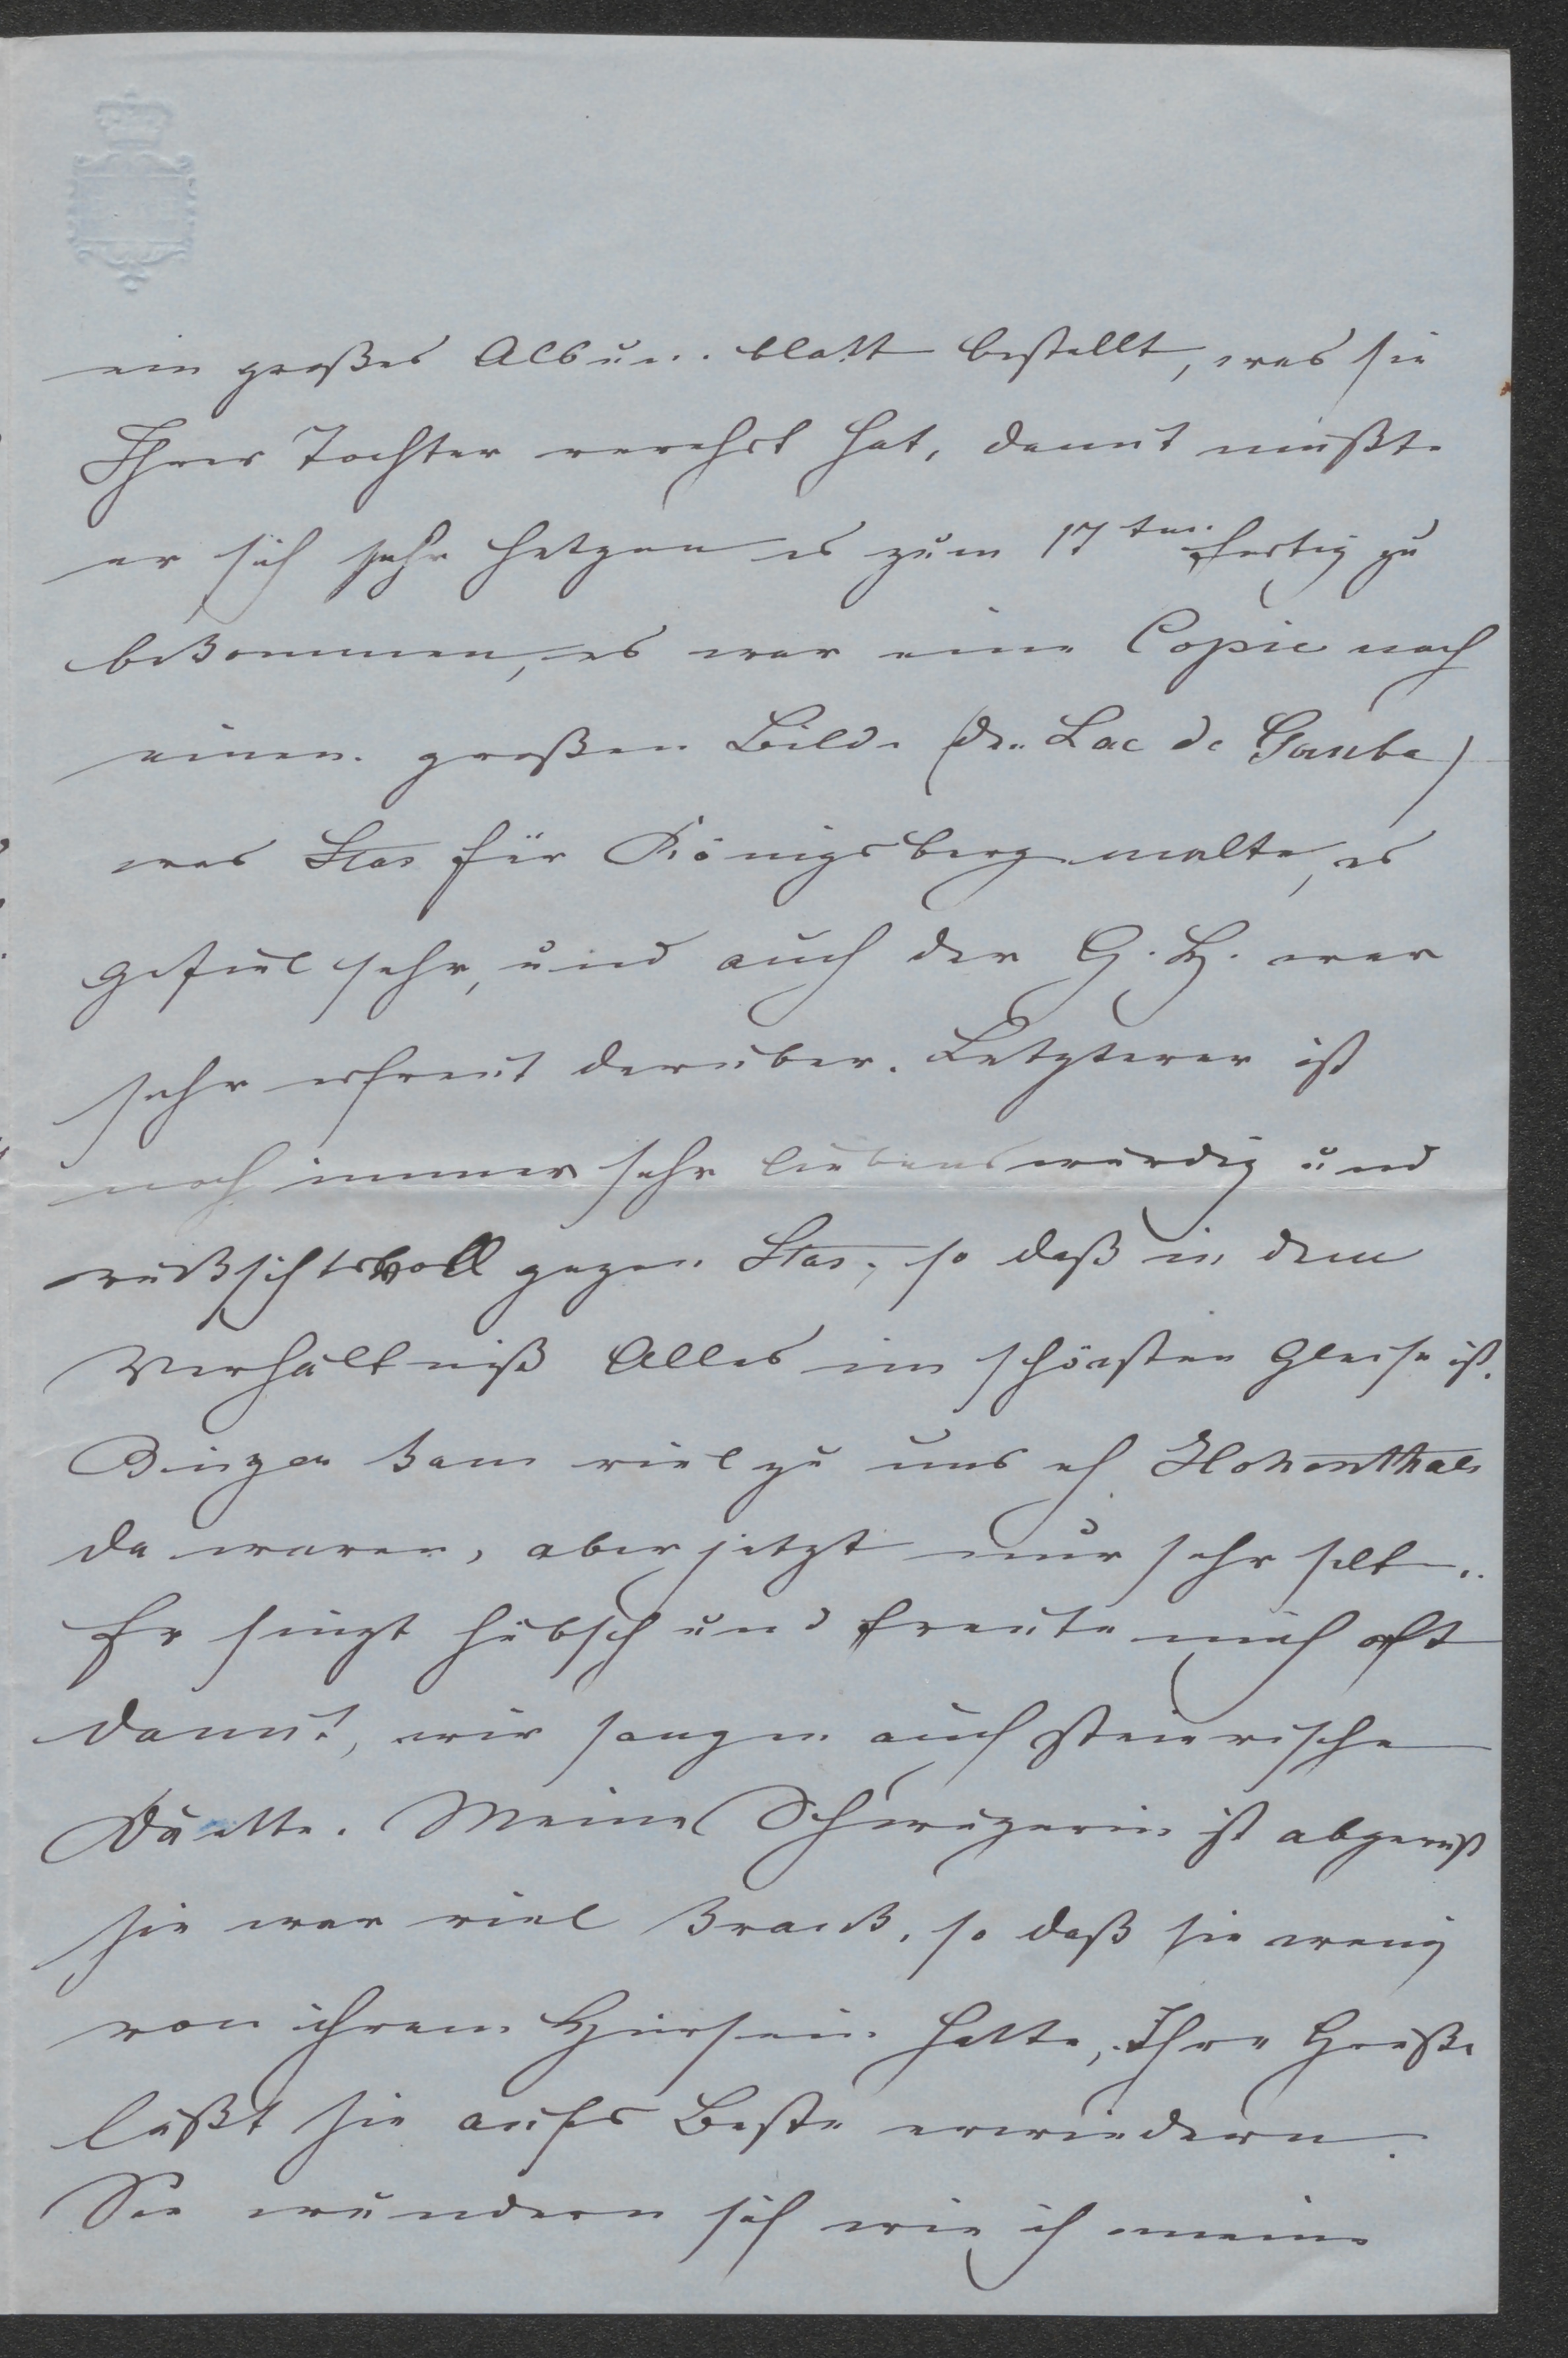 ein großes Album blatt bestellt, was sie
Ihrer Tochter verehrt hat, damit mußte
er sich sehr hetzen es zum 17ten fertig zu
bekommen, es war eine Copie nach
einem großen Bilde (den Lac de Gaube)
was Stas für Königsberg malte, es
gefiel sehr, und auch der G. H. war
sehr erfreut darüber. Letzterer ist
noch immer sehr liebenswürdig und
rücksichtsvoll gegen Stas, so daß in dem
Verhältniß Alles im schönsten Gleise ist.
kam viel zu uns als Hohenthals
da waren, aber jetzt nur sehr selten.
Er singt hübsch und freute mich oft
damit, wir sangen auch steierische
Duette. Meine Schwägerin ist abgereist
sie war viel krank, so daß sie wenig
von ihrem Hiersein hatte, Ihre Grüße
läßt sie aufs Beste erwiedern.
Sie wundern sich wie ich meine